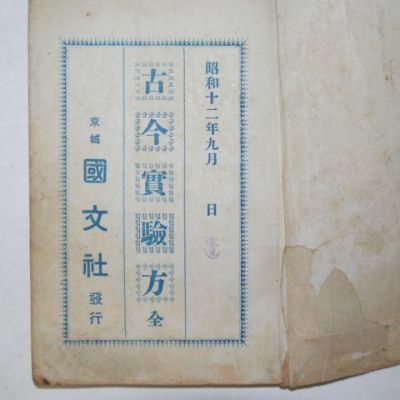 昭和十二年九月 日
古今實驗方 全
京城 國文社 發行